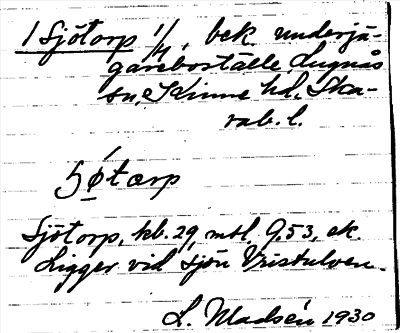 1 Sjötorp 1/4, bck. underjä-
gareboställe, Lugnås
sn, Kinne hd. Ska-
rab. l.
5ø̀tɑrp
Sjötorp, kb. 29, mtl. 9,53, ek.
Ligger vid sjön Vristulven.
L. Madsén 1930